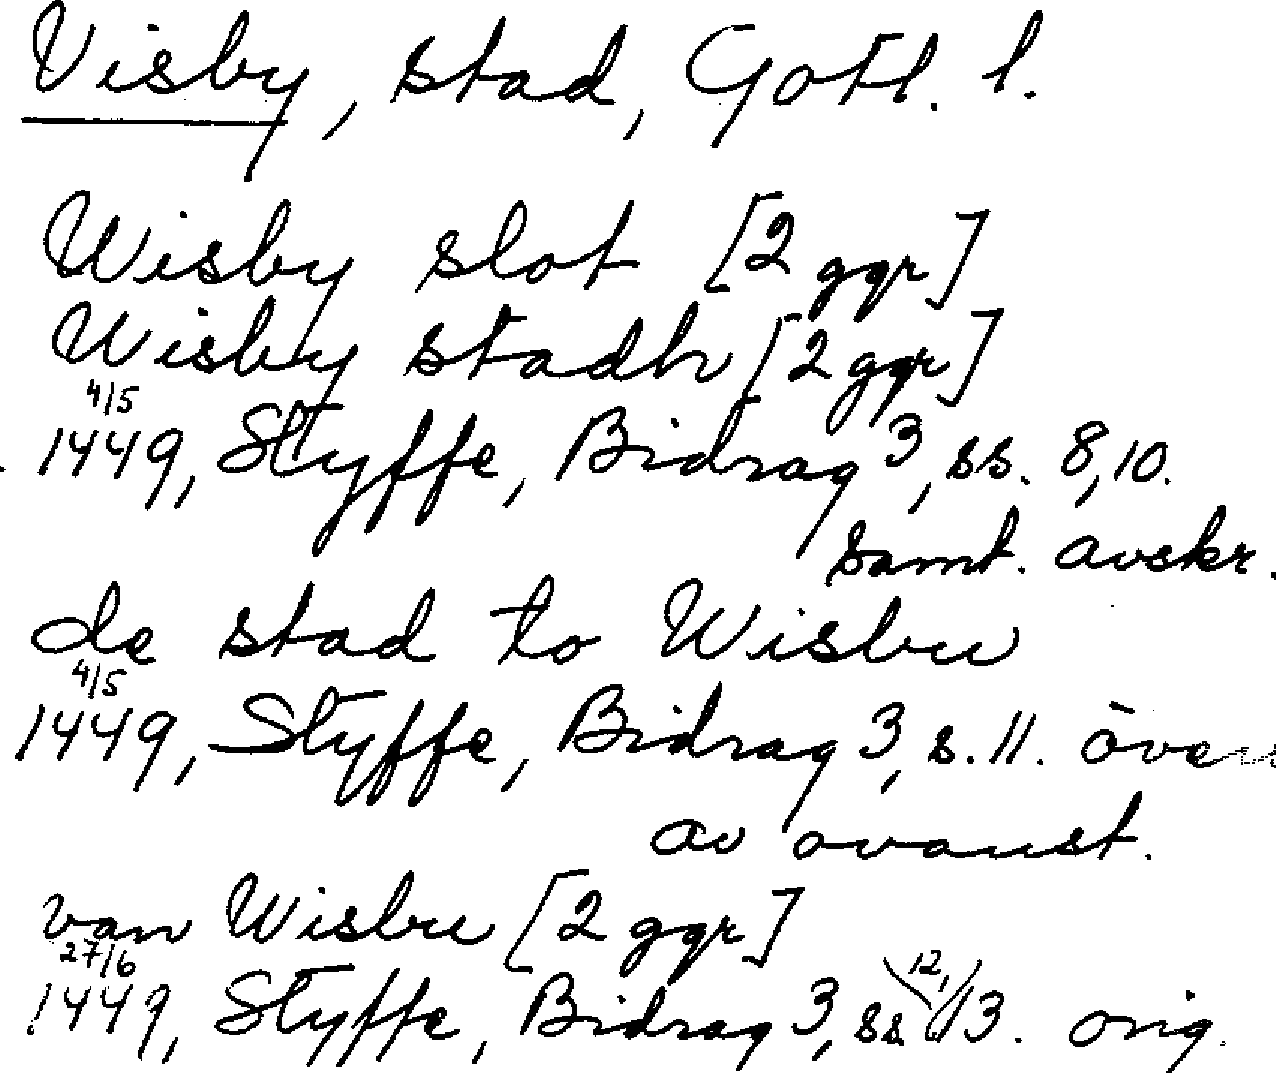 Visby, stad, Gotl. l.
Wisby slot [2 ggr]
Wisby stadh [2 ggr]
4/5
1449, Styffe, Bidrag 3, ss. 8, 10.
samt. avskr.
de stad to Wisbu
4/5
1449, Styffe, Bidrag 3, s. 11. övers
av ovanst.
van Wisbu [2 ggr]
27/6
1449, Styffe, Bidrag 3, ss 12, 13. orig.